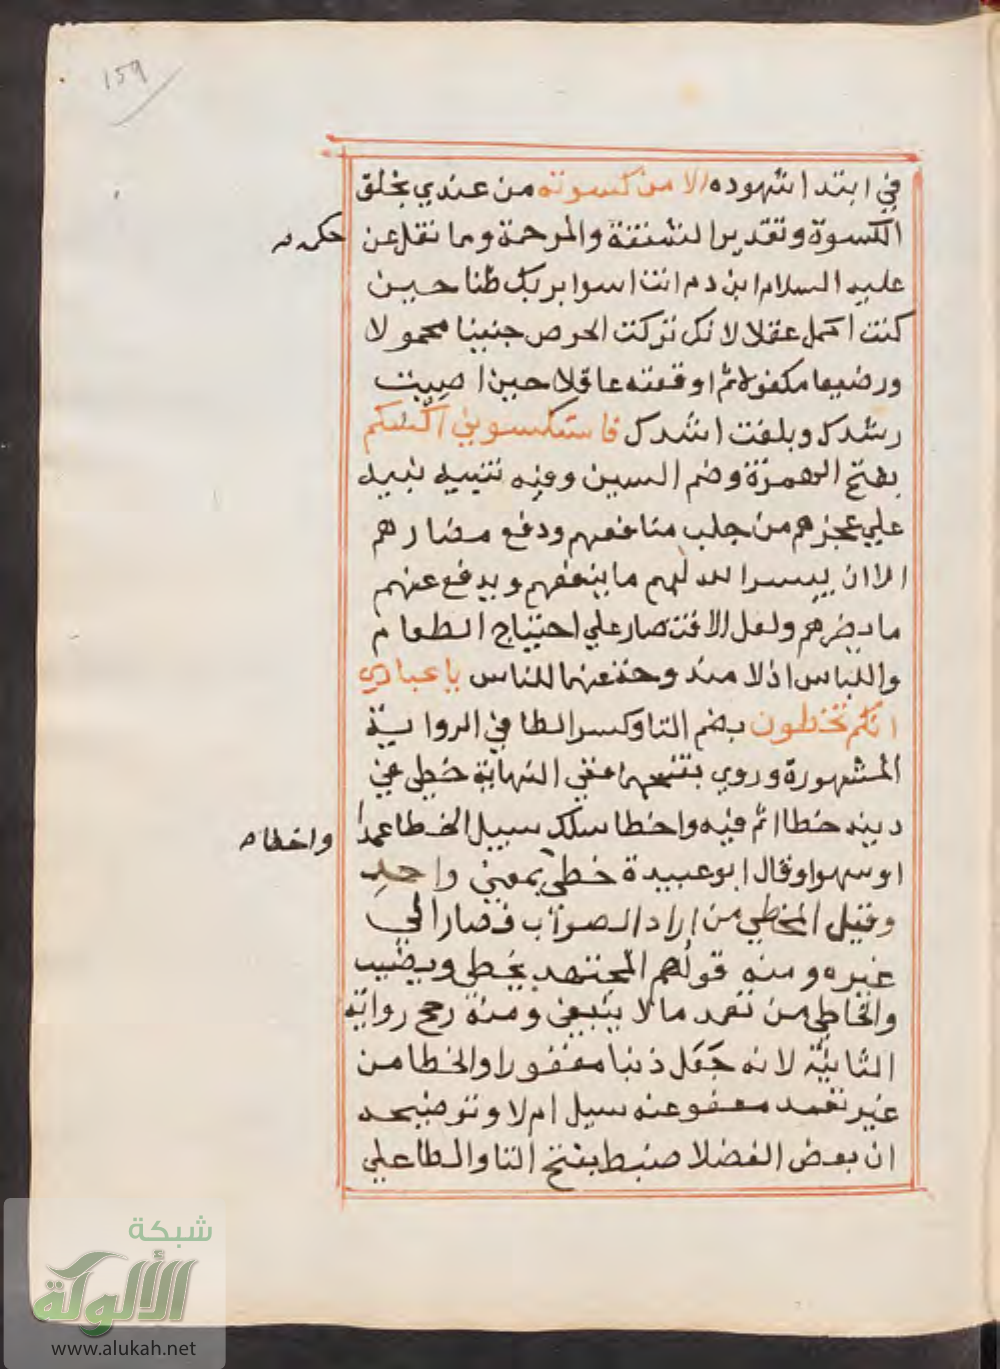 159
في ابتدا شهوده الا من كسوته من عندي بخلق
الكسوة وتقدير الشفقة والمرحمة وما نقل عن
حكم
عليه السلام ابن دم انت اسوا بربك ظنا حين
كنت اكمل عقلا لانك تركت الحرص جنينا محمولا
ورضيعا مكفولا ثم اوقعته عاقلا حين اصبت
رشدك وبلغت اشدك فاستكسوني اكسكم
بفتح الهمزة وضم السين وفيه تنبيه نبيه
علي عجزهم من جلب منافعهم ودفع مضارهم
الا ان ييسر الله لهم ما ينفعهم ويدفع عنهم
ما يضرهم ولعل الاقتصار علي احتياج الطعام
واللباس اذ لا مند وحة عنهما للناس يا عبادي
انكم تخطون بضم التا وكسر الطا في الرواية
المشهورة وروي بفتحهما ففي النهاية خطي في
دينه خطا اثم فيه واخطا سلك سبيل الخطا عمدا
واخطا م
او سهوا وقال ابو عبيدة خطي بمعني واحد
وقيل المخطي من اراد الصواب فصار الي
غيره ومنه قولهم المجتهد يخطي ويصيب
والخاطي من تعمد ما لا ينبغي ومنه رجح رواية
الثانية لانه جعل ذنبا مغفورا والخطا من
غير تعمد معفو عنه سيل ام لا وتوضيحه
ان بعض الفضلا ضبط بفتح التا والطا علي
شبكة
الألوكة
www.alukah.net